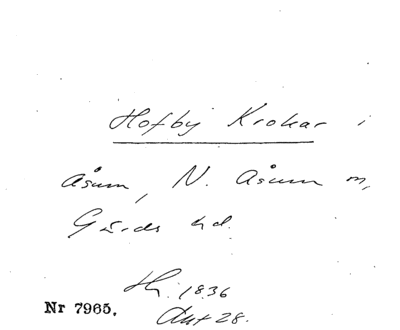 Hofby Krokar i
Åsum, N. Åsum m,
Gärds hd.
Hi. 1836
Akt 28.
Nr 7965.